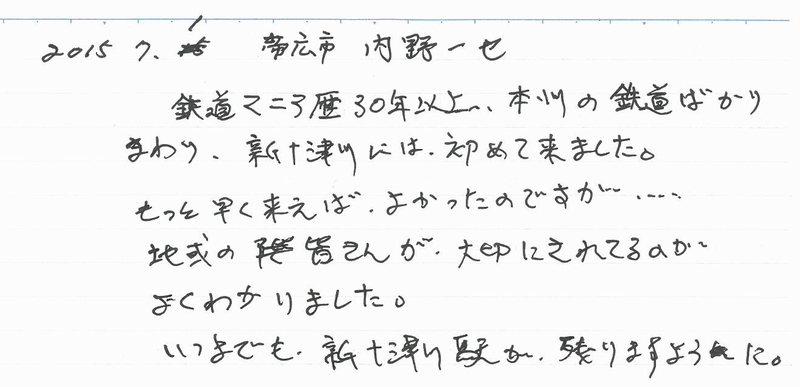 2015 7. 1 帯広市 内野一七
鉄道マニア歴30年以上、本州の鉄道ばかり
まわり、新十津川には、初めて来ました。
もっと早く来えば、よかったのですが‥‥
地域の皆さんが、大切にされてるのが
よくわかりました。
いつまでも、新十津川駅が、残りますように。